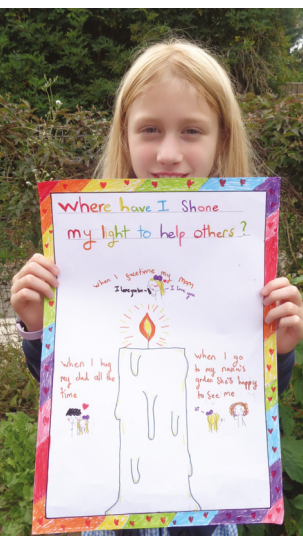 Where have I Shone
my light to help others?
when I facetime my mom
I love you
I love you
When I hug
my dad all the
time
When I go
to my nana's
graden She's happy
to see me